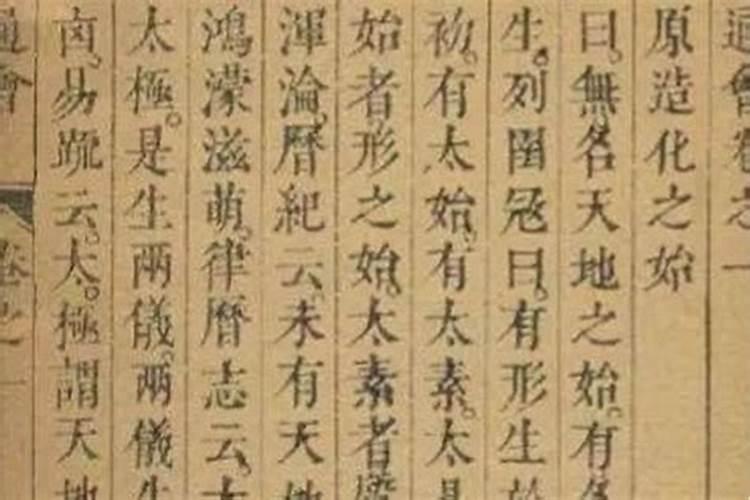 通會卷之一
原造化之始
曰。無名天地之始。有名
生。列圄冦曰。有形生於
𥘉。有太始。有太素。太易
始者形之始。太素者
渾淪。曆紀云。未有天地
鴻濛滋萌。律曆志云。太
太極。是生兩儀。兩儀生
卤。易䟽云。太極謂天地
卷之一